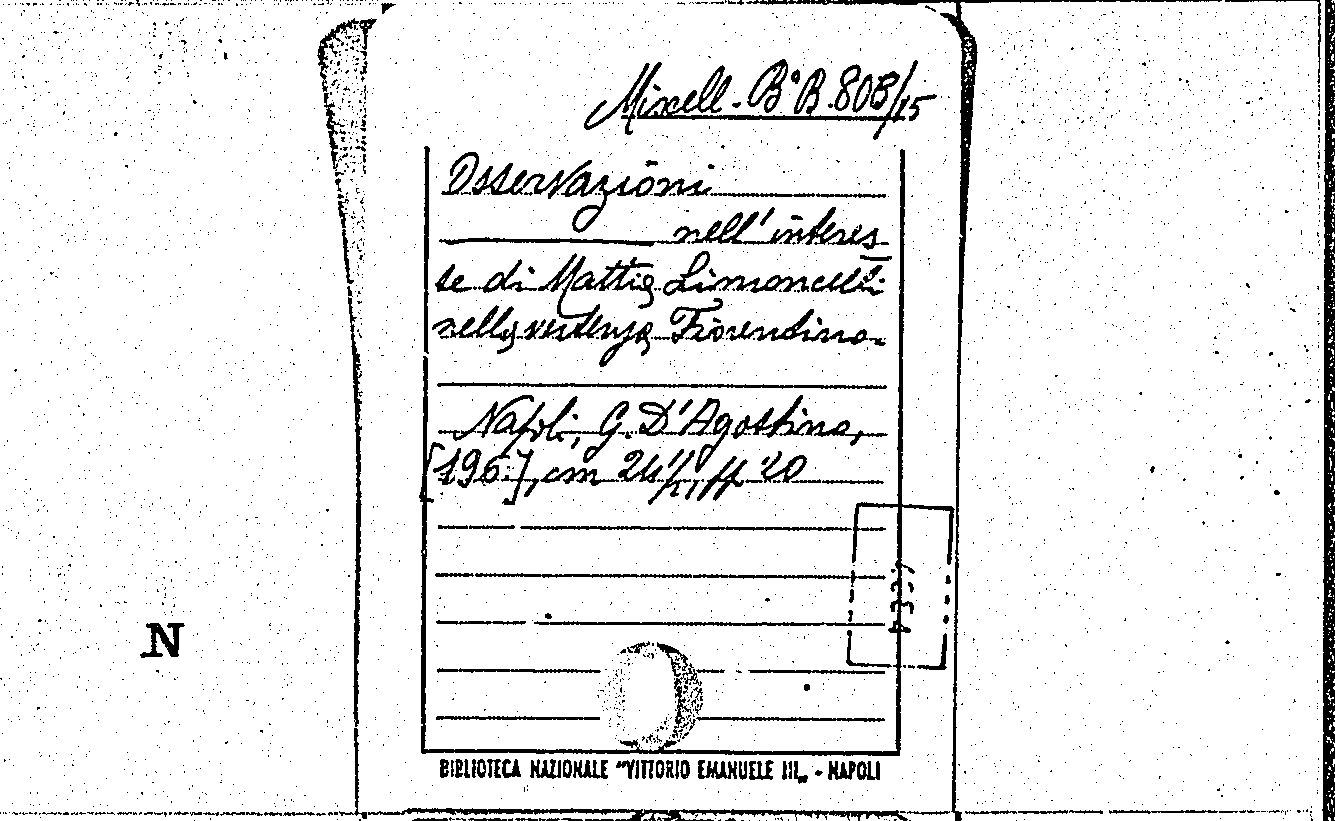 Miscell. Bª B. 808/15
Osservazioni
nell'interes-
se di Mattia Limoncelli
nella vertenza Fiorentino.
Napoli, G. D'Agostino,
[196.], cm 24½, pp 20
N
BIBLIOTECA NAZIONALE "VITTORIO EMANUELE III„ - NAPOLI